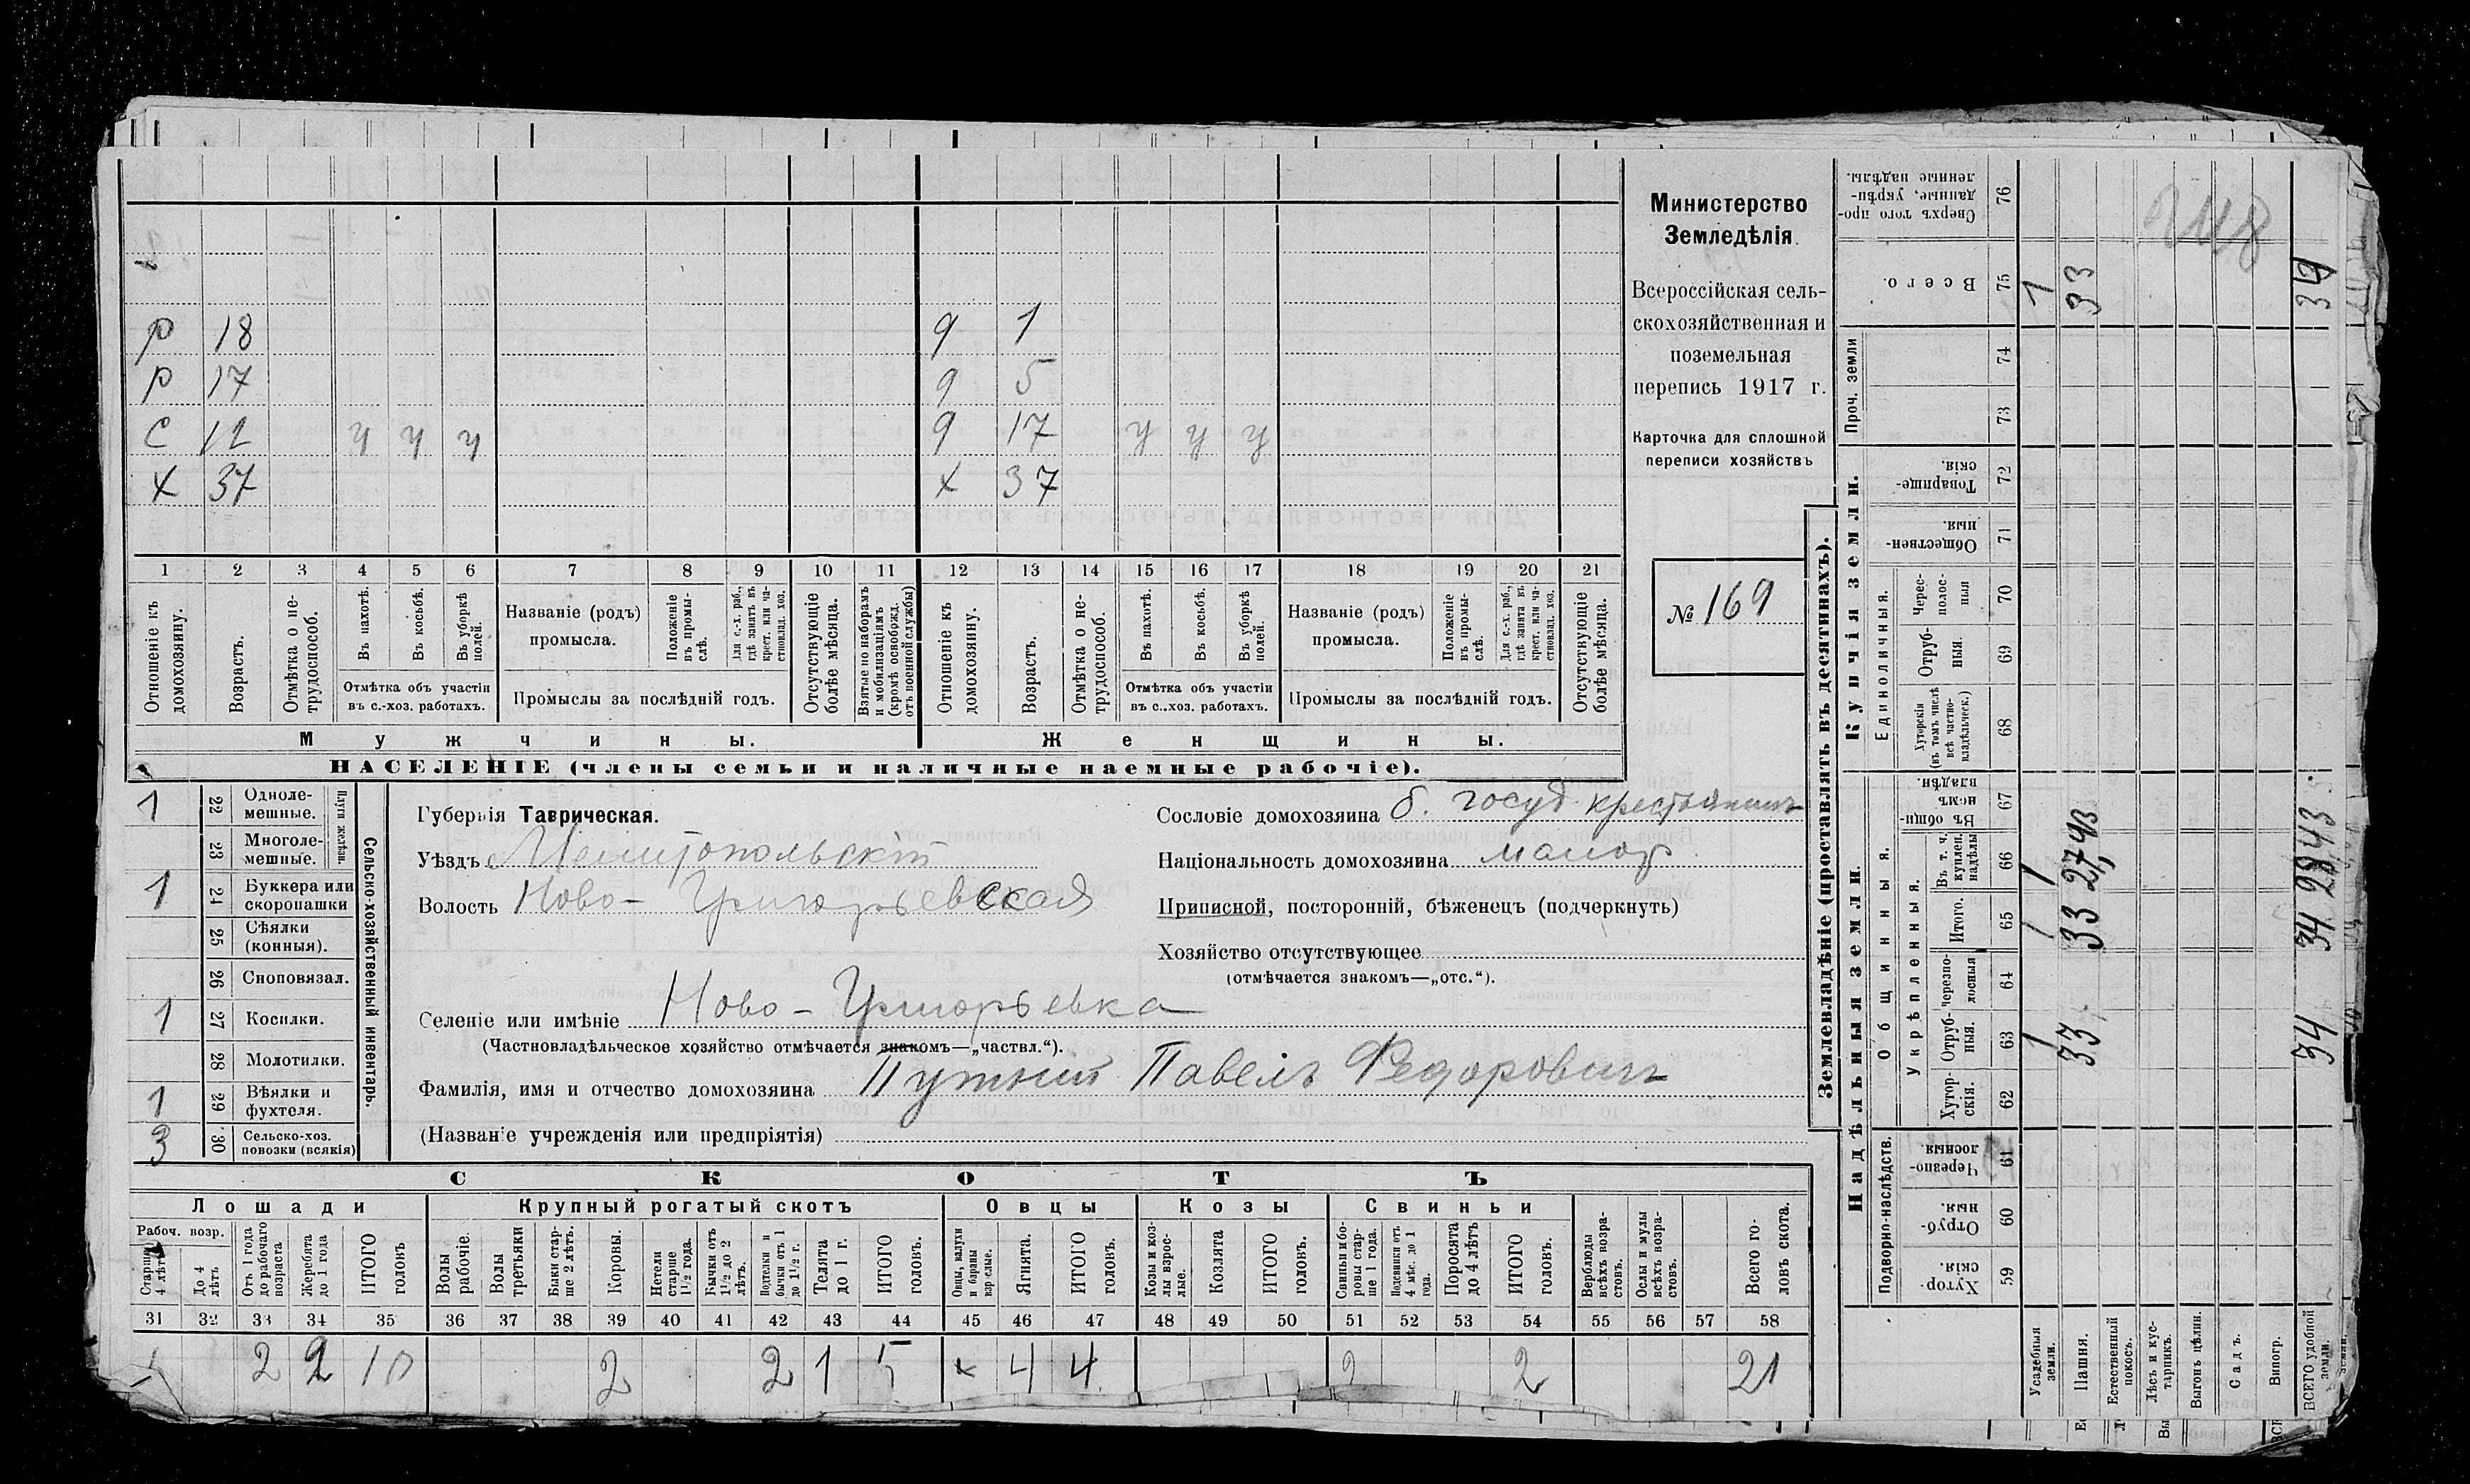 р 18 9 1
р 17 9 5
с 12 ч ч ч 9 17 у у у
х 37 х 37
1 2 3 4 5 6 7 8 9 10 11 12 13 14 15 16 17 18 19 20 21
Отношеніе къ домохозяину.
Возрастъ.
Отмѣтка о не-трудоспособ.
Въ пахотѣ.
Въ косьбѣ.
Въ уборкѣ полей.
Отмѣтка объ участіи въ с.-хоз. работахъ.
Названіе (родъ) промысла.
Положеніе въ промы-слѣ.
Для с.-х. раб., гдѣ занятъ въ крест. или ча-стновлад. хоз.
Промыслы за послѣдній годъ.
Отсутствующіе болѣе мѣсяца.
Взятые по наборамъ и мобилизаціямъ (кромѣ освобожд. отъ военной службы)
Отношеніе къ домохозяину.
Возрастъ.
Отмѣтка о не-трудоспособ.
Въ пахотѣ.
Въ косьбѣ.
Въ уборкѣ полей.
Отмѣтка объ участіи въ с..хоз. работахъ.
Названіе (родъ) промысла.
Положеніе въ промы-слѣ.
Для с.-х. раб., гдѣ занята въ крест. или ча-стновлад. хоз.
Промыслы за послѣдній годъ.
Отсутствующіе болѣе мѣсяца.
Мужчины. Женщины.
НАСЕЛЕНІЕ (члены семьи и наличные наемные рабочіе).
Министерство
Земледѣлія
Всероссійская сель-
скохозяйственная и
поземельная
перепись 1917 г.
Карточка для сплошной
переписи хозяйствъ
№ 169
1 22 Однолемешные.
23 Многолемешные.
Плуги желѣзн.
1 24 Буккера или скоропашки
25 Сѣялки (конныя).
26 Сноповязал.
1 27 Косилки.
28 Молотилки.
1 29 Вѣялки и фухтеля.
3 30 Сельско-хоз. повозки (всякія)
Сельско-хозяйственный инвентарь.
Губернія Таврическая.
Уѣздъ Мелитопольскій
Волость Ново-Григорьевская
Селеніе или имѣніе Ново-Григорьевка
(Частновладѣльческое хозяйство отмѣчается знакомъ—„частвл.“).
Фамилія, имя и отчество домохозяина Путній Павелъ Федоровичъ
(Названіе учрежденія или предпріятія)
Сословіе домохозяина б. госуд. крестьянинъ
Національность домохозяина малор.
Приписной, посторонній, бѣженецъ (подчеркнуть)
Хозяйство отсутствующее
(отмѣчается знакомъ—„отс.“).
СКОТЪ
Лошади Крупный рогатый скотъ Овцы Козы Свиньи
Рабоч. возр.
Старше 4 лѣтъ
До 4 лѣтъ
Отъ 1 года до рабочаго возраста
Жеребята до 1 года
ИТОГО головъ
Волы рабочіе.
Волы третьяки
Быки стар-ше 2 лѣтъ.
Коровы.
Нетели старше 1 1/2 года.
Бычки отъ 1 1/2 до 2 лѣтъ.
Подтелки и бычки отъ 1 до 1 1/2 г.
Телята до 1 г.
ИТОГО головъ.
Овцы, валухи и бараны взрослые.
Ягнята.
ИТОГО головъ.
Козы и коз-лы взрос-лые.
Козлята
ИТОГО головъ.
Свиньи и бо-ровы стар-ше 1 года.
Подсвинки отъ 4 мѣс. до 1 года.
Поросята до 4 лѣтъ
ИТОГО головъ.
Верблюды всѣхъ возра-стовъ.
Ослы и мулы всѣхъ возра-стовъ.
Всего го-ловъ скота.
31 32 33 34 35 36 37 38 39 40 41 42 43 44 45 46 47 48 49 50 51 52 53 54 55 56 57 58
2 2 10 2 2 1 5 4 4 2 2 21
Землевладѣніе (проставлять въ десятинахъ).
Надѣльныя земли.
Купчія земли.
Проч. земли
Подворно-наслѣдств.
Общинныя.
Укрѣпленныя.
Единоличныя.
Сверхъ того про-данные, укрѣп-ленные надѣлы. 76
Всего. 75 1 33 34
74
73
Товарище-скія. 72
Обществен-ныя. 71
Черес-полос-ныя 70
Отруб-ныя. 69
Хуторскія (въ томъ числѣ всѣ частно-владѣльческ.) 68
Въ общи-номъ владѣн. 67
Въ т. ч. куплен. надѣлы 66 1 27,43 28,43
Итого. 65 1 33 34
Черезпо-лосныя 64
Отруб-ныя. 63 1 33 34
Хутор-скія. 62
Черезпо-лосныя 61
Отруб-ныя. 60
Хутор-скія. 59
Усадебныя земли.
Пашня.
Естественный покосъ.
Лѣсъ и кус-тарникъ.
Выгонъ цѣлин.
Садъ.
Виногр.
ВСЕГО удобной земли.